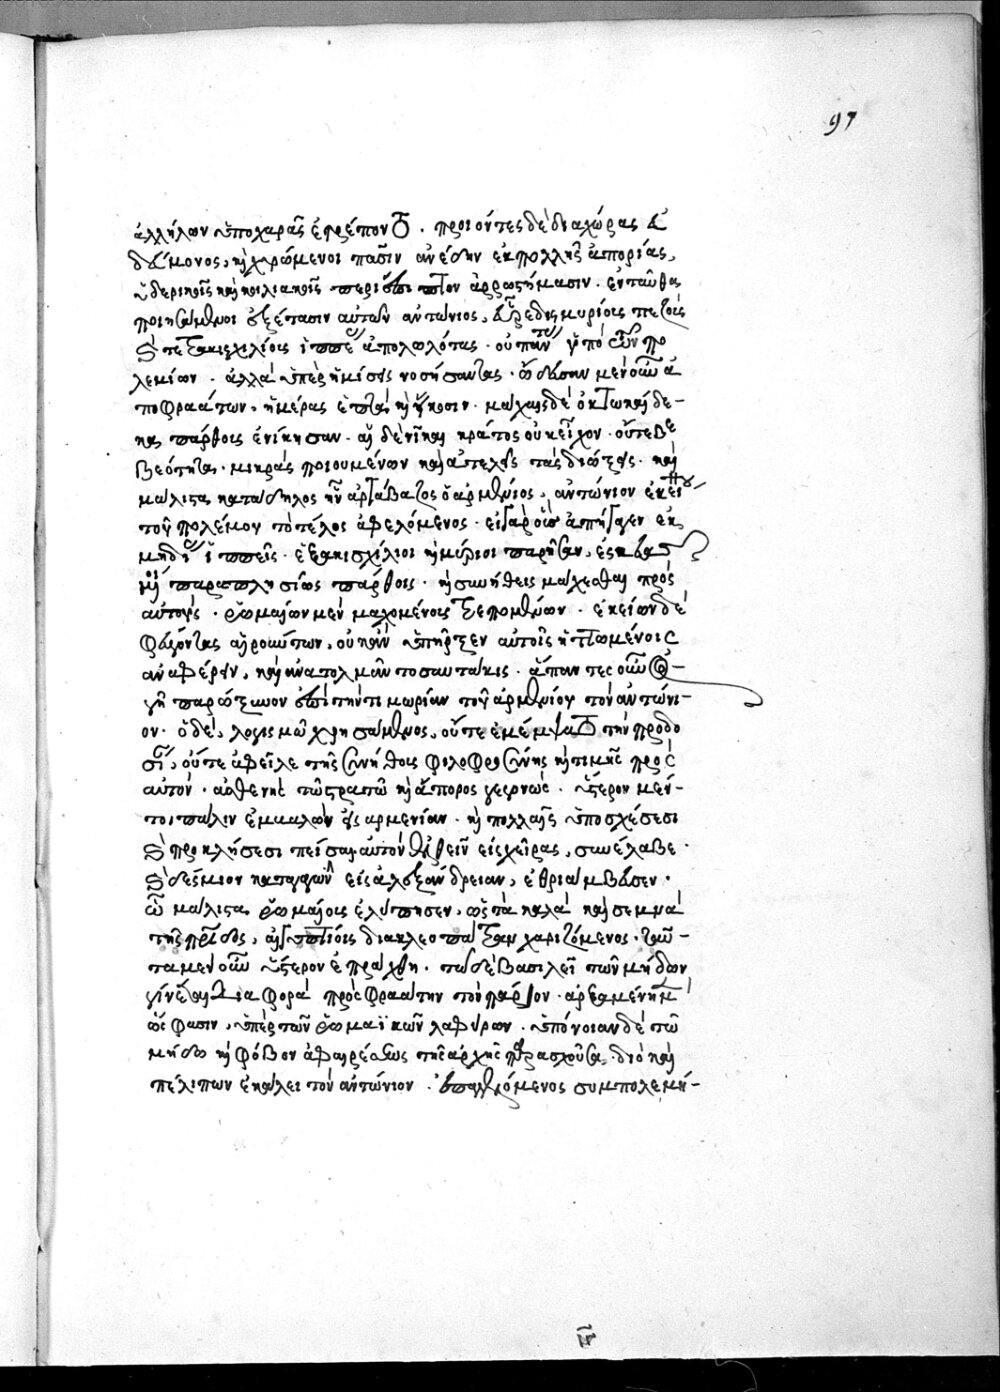 97
ἀλλήλων ὑπὸ χαρᾶς ἐτρέποντο. προϊόντες δὲ διὰ χώρας εὐ
δαίμονος, καὶ χρώμενοι πᾶσιν ἀνέδην ἐκ πολλῆς ἀπορίας,
ὑδερικοῖς καὶ κοιλιακοῖς περιέπιπτον ἀρρωστήμασιν. ἐνταῦθα
ποιησάμενοι ἐξέτασιν αὐτῶν ἀντώνιος, εὗρε δισμυρίους πεζοὺς
καὶ τετρακισχιλίους ἱππεῖς ἀπολωλότας. οὐ πάντας ὑπὸ τῶν πο
λεμίων. ἀλλὰ ὑπὲρ ἡμίσεις νοσήσαντας. ὥδευσαν μὲν οὖν ἀ
πὸ φραάτων, ἡμέρας ἑπτὰ καὶ εἴκοσιν. μάχαις δὲ ὀκτωκαίδε-
κα πάρθους ἐνίκησαν. αἱ δὲ νῖκαι κράτος οὐκ εἶχον. οὔτε βε
βαιότητα. μικρὰς ποιουμένων καὶ ἀτελεῖς τὰς διώξεις. καὶ
μάλιστα κατάδηλος ἦν ἀρταβάζος ὁ ἀρμένιος, ἀντώνιον ἐκείνου
τοῦ πολέμου τὸ τέλος ἀφελόμενος. εἰ γὰρ οὓς ἀπήγαγεν ἐκ
μηδίας ἱππεῖς. ἑξακισχίλιοι καὶ μύριοι παρῆσαν, ἐσκευασμέ
νοι παραπλησίως πάρθοις. καὶ συνήθεις μάχεσθαι πρὸς
αὐτοὺς. ῥωμαίων μὲν μαχομένους τρεπομένων. ἐκείνων δὲ
φεύγοντας αἱρούντων, οὐκ ἂν ὑπῆρξεν αὐτοῖς ἡττωμένοις
ἀναφέρειν, καὶ ἀνατολμᾶν τοσαυτάκις. ἅπαντες οὖν ὀρ-
γῇ παρώξυνον ἐπὶ τὴν τιμωρίαν τοῦ ἀρμενίου τὸν ἀντώνι-
ον. ὁ δὲ, λογισμῷ χρησάμενος, οὔτε ἐμέμψατο τὴν προδο
σίαν, οὔτε ἀφεῖλε τῆς συνήθους φιλοφροσύνης καὶ τιμῆς πρὸς
αὐτὸν. ἀσθενὴς τῷ στρατῷ καὶ ἄπορος γεγονώς. ὕστερον μέν-
τοι πάλιν ἐμβαλὼν εἰς ἀρμενίαν. καὶ πολλαῖς ὑποσχέσεσι
καὶ προκλήσεσι πείσας αὐτὸν ἐλθεῖν εἰς χεῖρας, συνέλαβε.
καὶ δέσμιον καταγαγὼν εἰς ἀλεξάνδρειαν, ἐθριάμβευσεν.
ᾧ μάλιστα ῥωμαίους ἐλύπησεν, ὡς τὰ καλὰ καὶ σεμνὰ
τῆς πατρίδος, αἰγυπτίοις διὰ κλεοπάτραν χαριζόμενος. ταῦ-
τα μὲν οὖν ὕστερον ἐπράχθη. τῷ δὲ βασιλεῖ τῶν μήδων
γίνεται διαφορὰ πρὸς φραάτην τὸν πάρθον. ἀρξαμένη μὲν
ὥς φασιν, ὑπὲρ τῶν ῥωμαϊκῶν λαφύρων. ὑπόνοιαν δὲ τῷ
μήδῳ καὶ φόβον ἀφαιρέσεως τῆς ἀρχῆς παρασχοῦσα. διὸ καὶ
πέμπων ἐκάλει τὸν ἀντώνιον. ἐπαγγελλόμενος συμπολεμή-